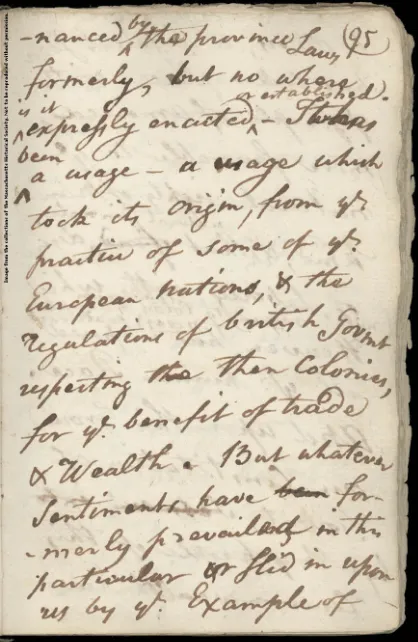 (95
-nanced by the province Laws
formerly, but no where
is it expressly enacted or established. - It has
been a usage - a usage which
took its origin, from ye
practice of some of ye
European nations, & the
regulations of british Govmt
respecting the then Colonies,
for ye benefit of trade
& Wealth. But whatever
Sentiments have been for-
-merly prevailed in this
particular or slid in upon
us by ye Example of
Image from the collections of the Massachusetts Historical Society. Not to be reproduced without permission.